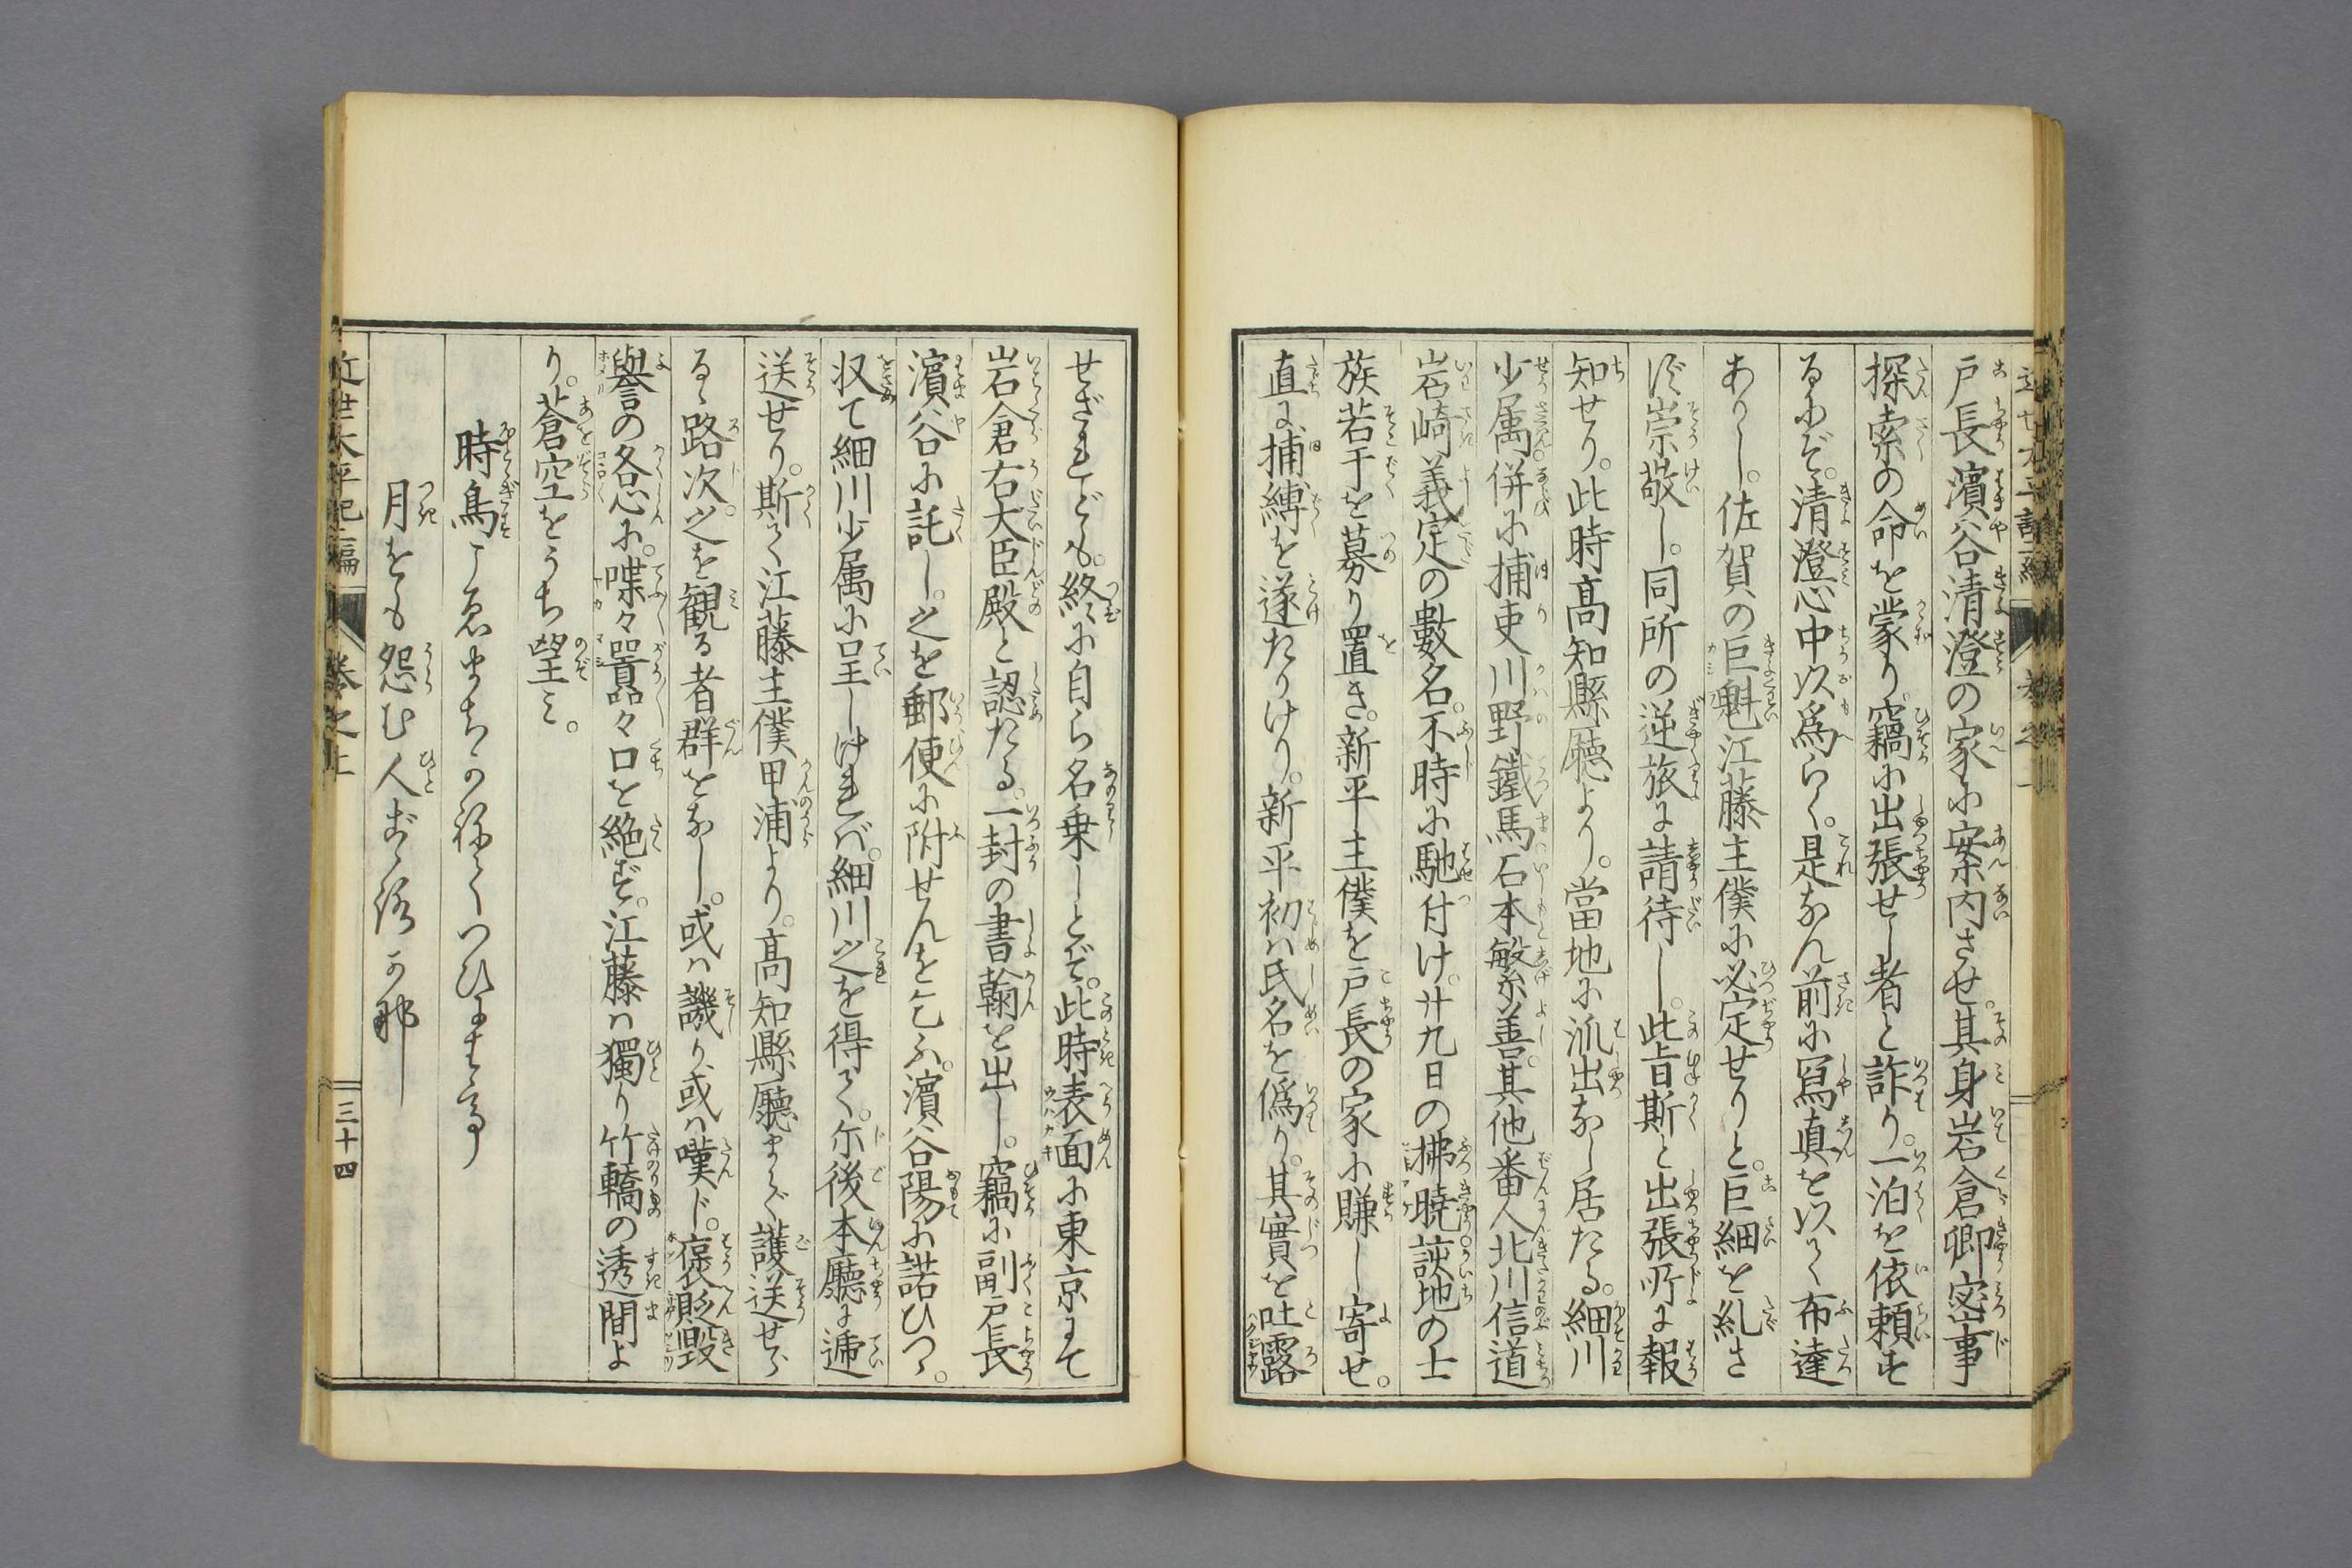 戸長濱谷清澄の家に案内させ。其身岩倉卿密事
探索の命を蒙り。竊に出張せし者と詐り。一泊を依頼す
るにぞ。清澄心中以爲らく。是なん前に冩真を以て布達
ありし。佐賀の巨魁江藤主僕に必定せりと。巨細を糺さ
ず崇敬し。同所の逆旅に請待し。此旨斯と出張所に報
知せり。此時高知縣廳より。當地に派出なし居たる。細川
少属。併に捕吏川野鐵馬石本繁善。其他番人北川信道
岩崎義定の數名。不時に馳付け。廿九日の拂暁。該地の士
族若干を募り置き。新平主僕を戸長の家に賺し寄せ。
直に捕縛を遂たりけり。新平初は氏名を僞り。其實を吐露
せざれども。終に自ら名乗しとぞ。此時表面に東京にて
岩倉右大臣殿と認たる。一封の書翰を出し。竊に副戸長
濱谷に託し。之を郵便に附せんを乞ふ。濱谷陽に諾ひつゝ。
収て細川少属に呈しければ。細川之を得て。尓後本廳に逓
送せり。斯て江藤主僕甲浦より。高知縣廳まで護送せら
るゝ路次。之を観る者群をなし。或は譏り或は嘆じ。褒貶毀
譽の各心に。喋々囂々口を絶ず。江藤は獨り竹轎の透間よ
り。蒼空をうち望み。
時鳥こゑまちかねてつひに
月をも怨む人ごゝろ可那
近世太平記二編
巻之上
三十四